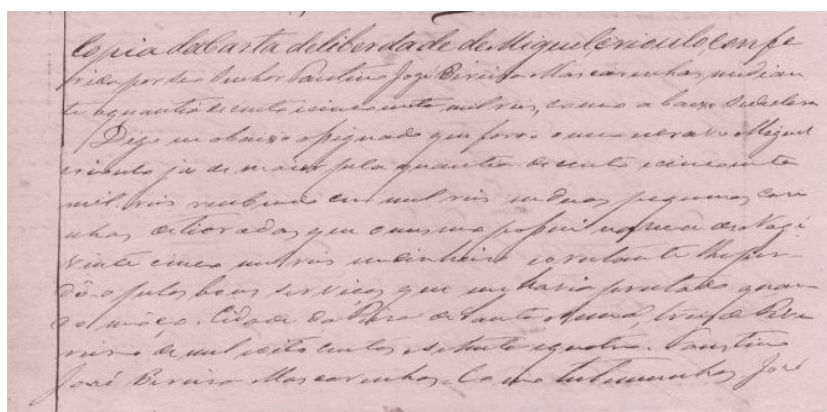 Copia da Carta de liberdade de Miguel, crioulo, confe
rida por seu Senhor Faustino José Pereira Mascarinhas, midian
te a quantia de cento e cincoenta mil reis, como abaixo se declara
Digo eu abaixo assignado que forro o meu escravo Miguel
crioulo ja de maior pela quantia de cento e cincoenta
mil reis recibendo cem mil reis em duas pequenas casi
nhas detioradas, que o mesmo possui na rua de
vinte cinco mil reis em dinheiro e o restante lhe per
dôo pelos bons serviços que me havia prestado quan
do môço. Cidade da de Santo de
reiro de mil oito centos e setenta e quatro. Faustino
José Pereira Mascarinhas. Como testemunhas José